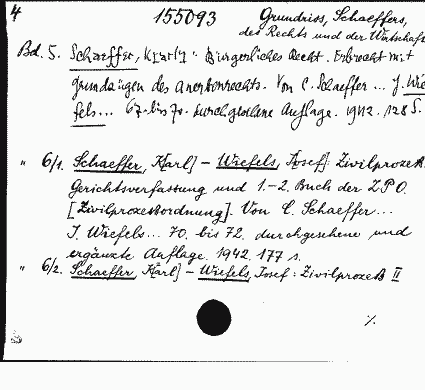 4 155093 Grundriss, Schaeffers,
des Rechts und der Wirtschaft
Bd. 5. Schaeffer, K[arl]: Bürgerliches Recht. Erbrecht mit
grundzügen des Anerbenrechts. Von C. Schaeffer ... J. Wie
fels... 67. bis 70. durchgesehene Auflage. 1942. 128 S.
" 6/1. Schaeffer, K[arl] - Wiefels, J[osef]: Zivilprozeß.
Gerichtsverfassung und 1.-2. Buch der ZPO.
[Zivilprozeßordnung]. Von C. Schaeffer...
J. Wiefels... 70. bis 72. durchgesehene und
ergänzte Auflage. 1942. 177 s.
" 6/2. Schaeffer, K[arl] - Wiefels, Josef: Zivilprozeß II
·/.